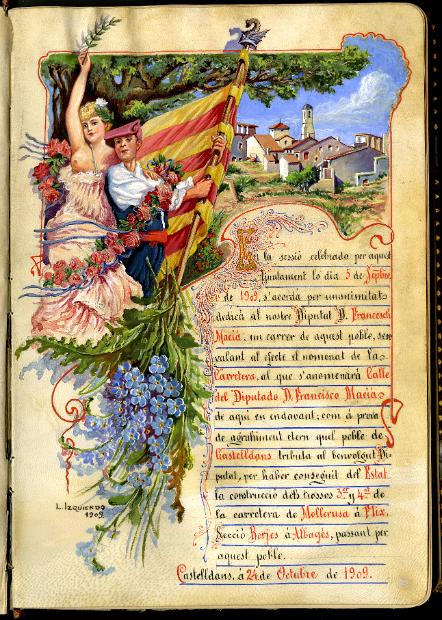 En la sessió celebrada per aquest
Ajuntament lo dia 5 de Septbre
de 1909, s'acorda per unanimitat
dedicá al nostre Diputat D. Francesch
Maciá, un carrer de aquest poble, sen-
yalant al efecte el nomenat de la
Carretera, al que s'anomenará Calle
del Diputado D. Francisco Maciá
de aqui en indavant; com á prova
de agrahiment etern quel poble de
Castelldans tributa al benvolgut Di-
putat, per haber conseguit del Estat
la construcció dels trossos 3er y 4t de
la carretera de Mollerusa á Flix,
Secció Borjes á Albagés, passant per
aquest poble.
Castelldans, á 24 de Octubre de 1909.
L. IZQUIERDO
1909.